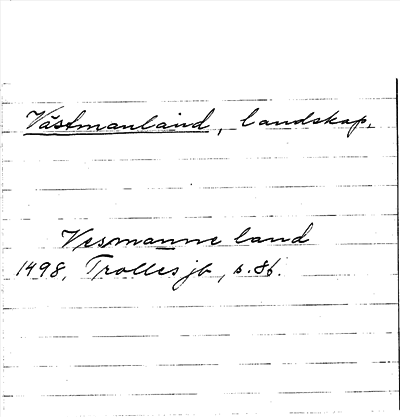 Västmanland, landskap.
Vesmanne land
1498, Trolles jb, s. 86.